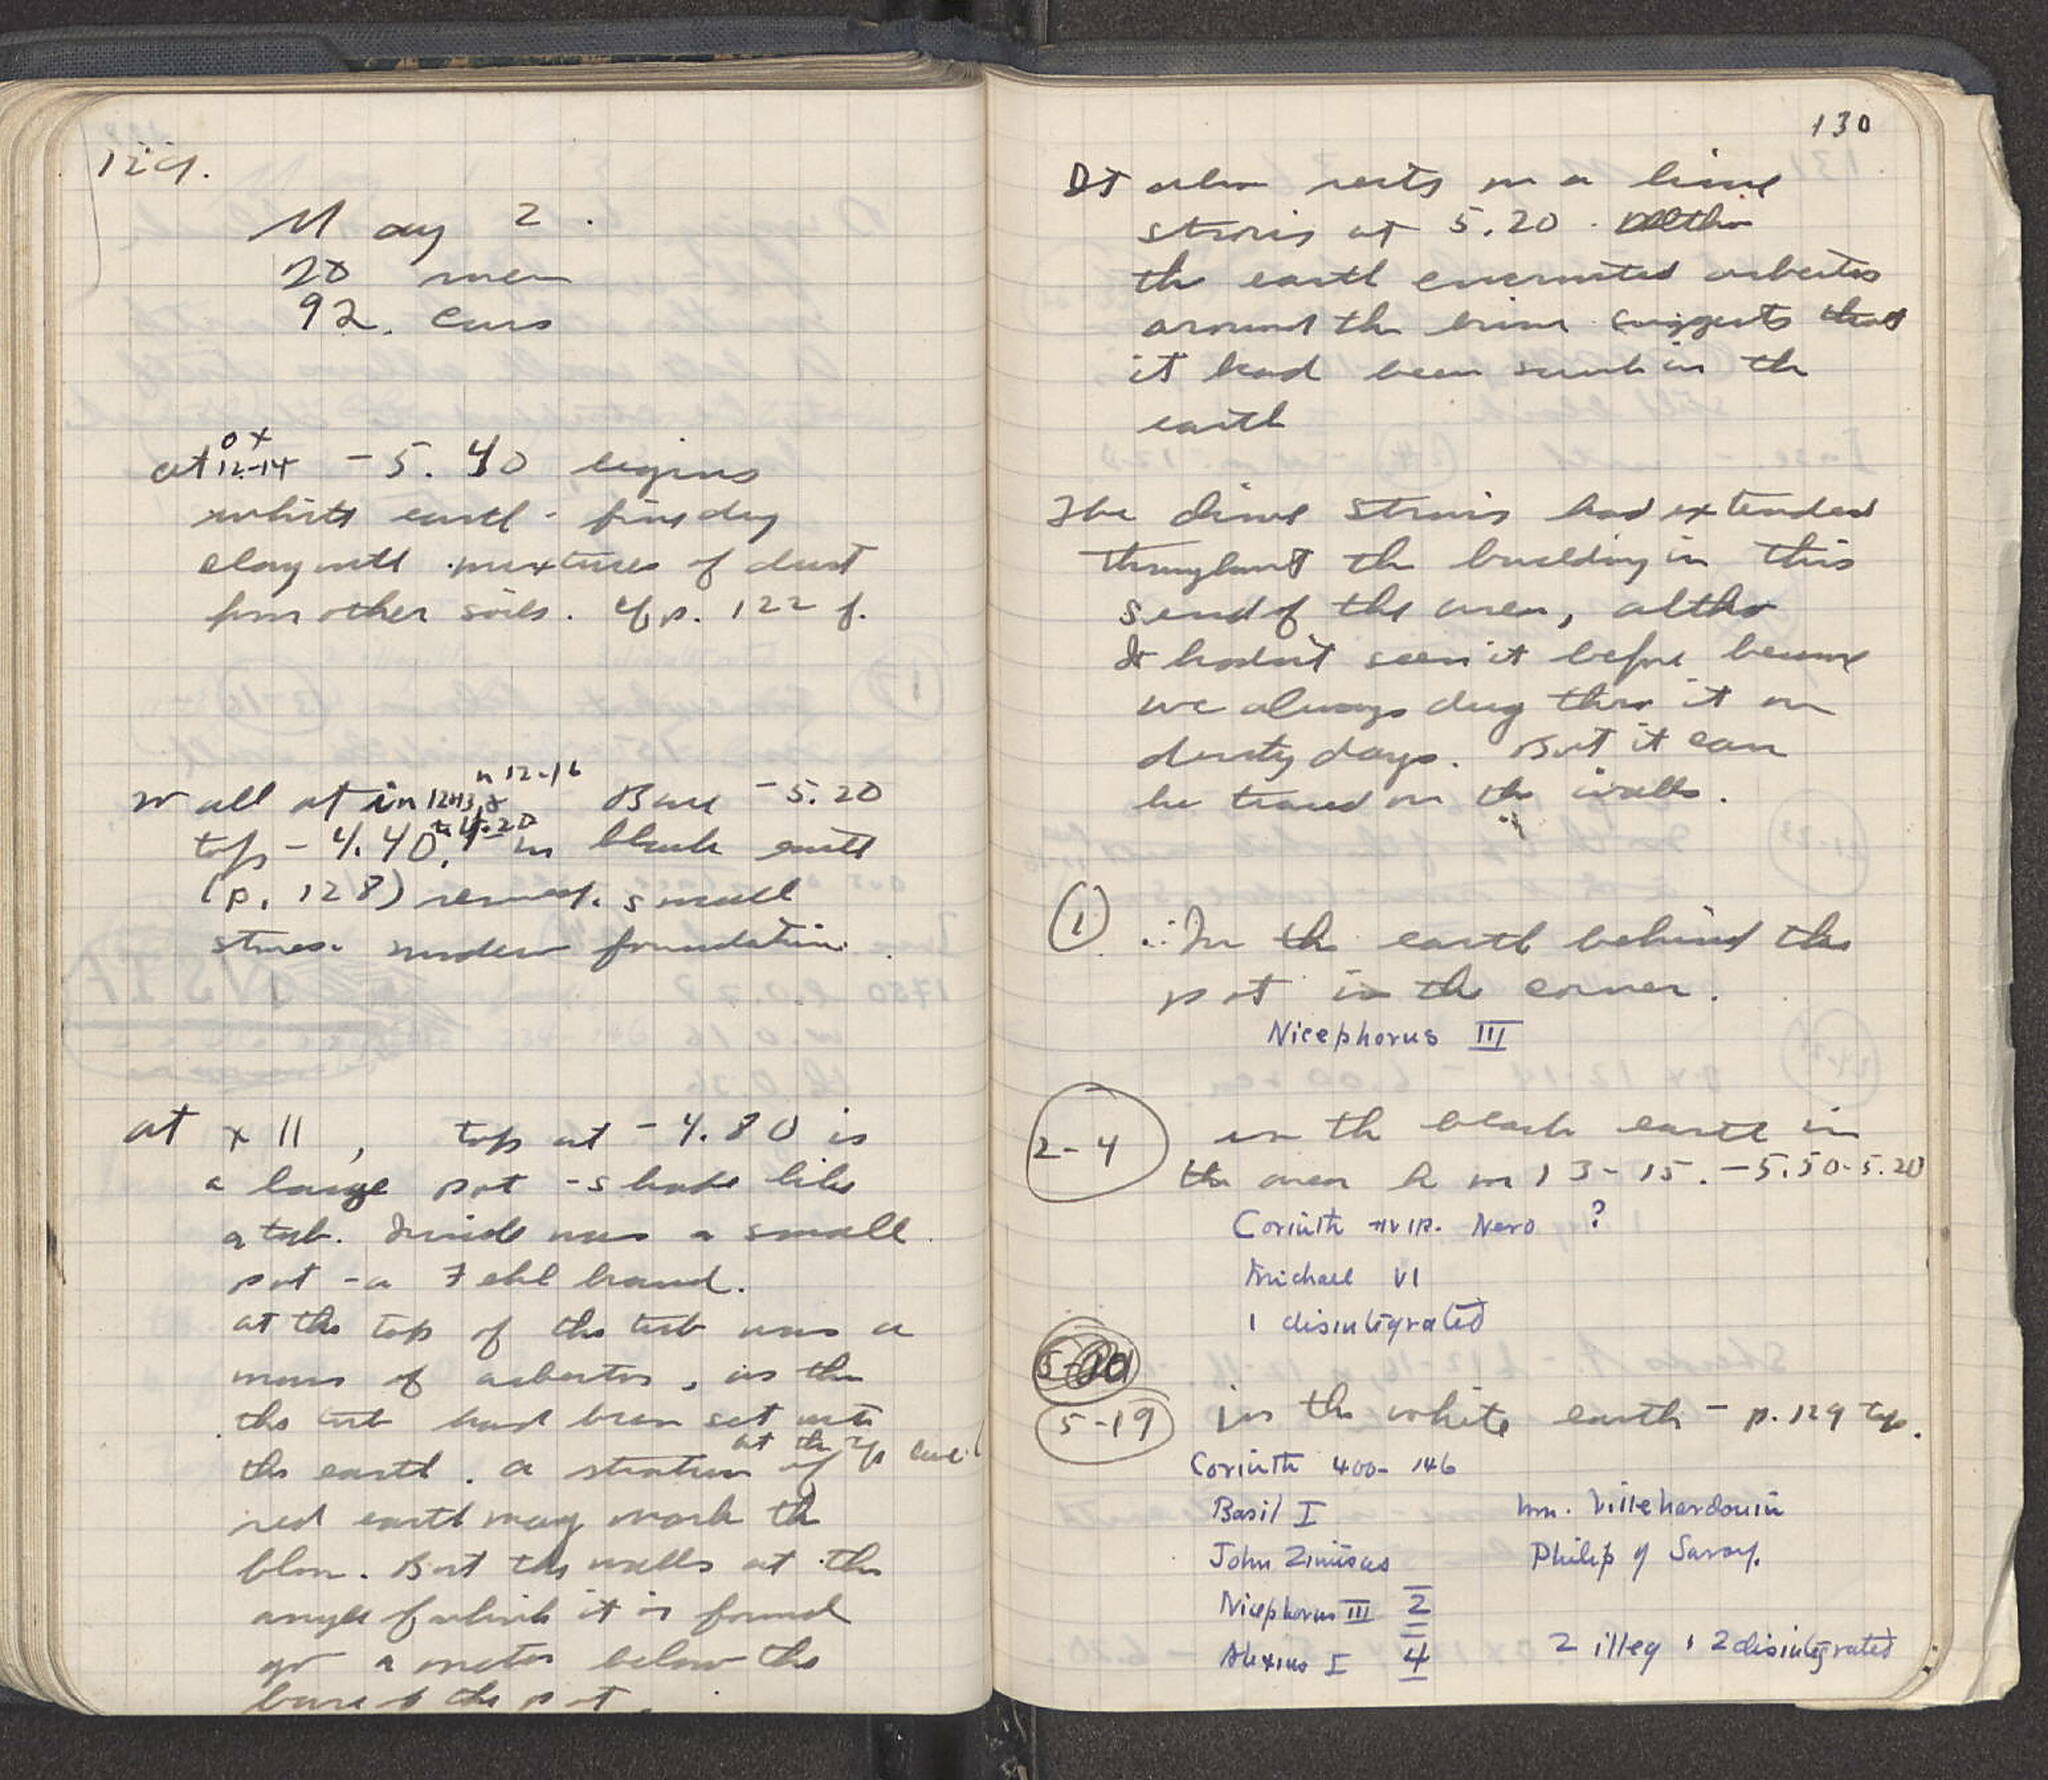 129.
May 2.
20 men
92. cars
at o x 12-14 - 5.40 begins
white earth - fine dry
clay with mixtures of dust
from other soils. Cf p. 122 f.
Wall at in n 12-16 Base - 5.20
top - 4.40, to 4.20 in black earth
(p. 128) removed. small
stones under foundation.
at x 11, top at - 4.80 is
a large pot - shape like
a tub. Inside was a small
pot - a Fehl brand.
at the top of the tub was a
mass of asbestos, as tho
the tub had been set into
the earth. a stratum of at the top level
red earth may mark the
floor. But the walls at the
angle of which it is found
go a meter below the
base of the pot.
130
It also rests on a lime
strosis at 5.20. Altho
the earth encrusted asbestos
around the brim suggests that
it had been sunk in the
earth
The lime strosis had extended
throughout the building in this
S end of the area, altho
I hadn't seen it before because
we always dug thro it on
dusty days. But it can
be traced on the walls.
1 :. In the earth behind the
pot in the corner.
Nicephorus III
2-4 in the black earth in
the area h m 13-15. -5.50-5.20
Corinth IIVIR. Nero ?
Michael VI
1 disintegrated
5-19 in the white earth - p. 129 top.
Corinth 400-146
Basil I Wm. Villehardouin
John Zimisces Philip of Savoy.
Nicephorus III 2
Alexius I 4 2 illeg, 2 disintegrated